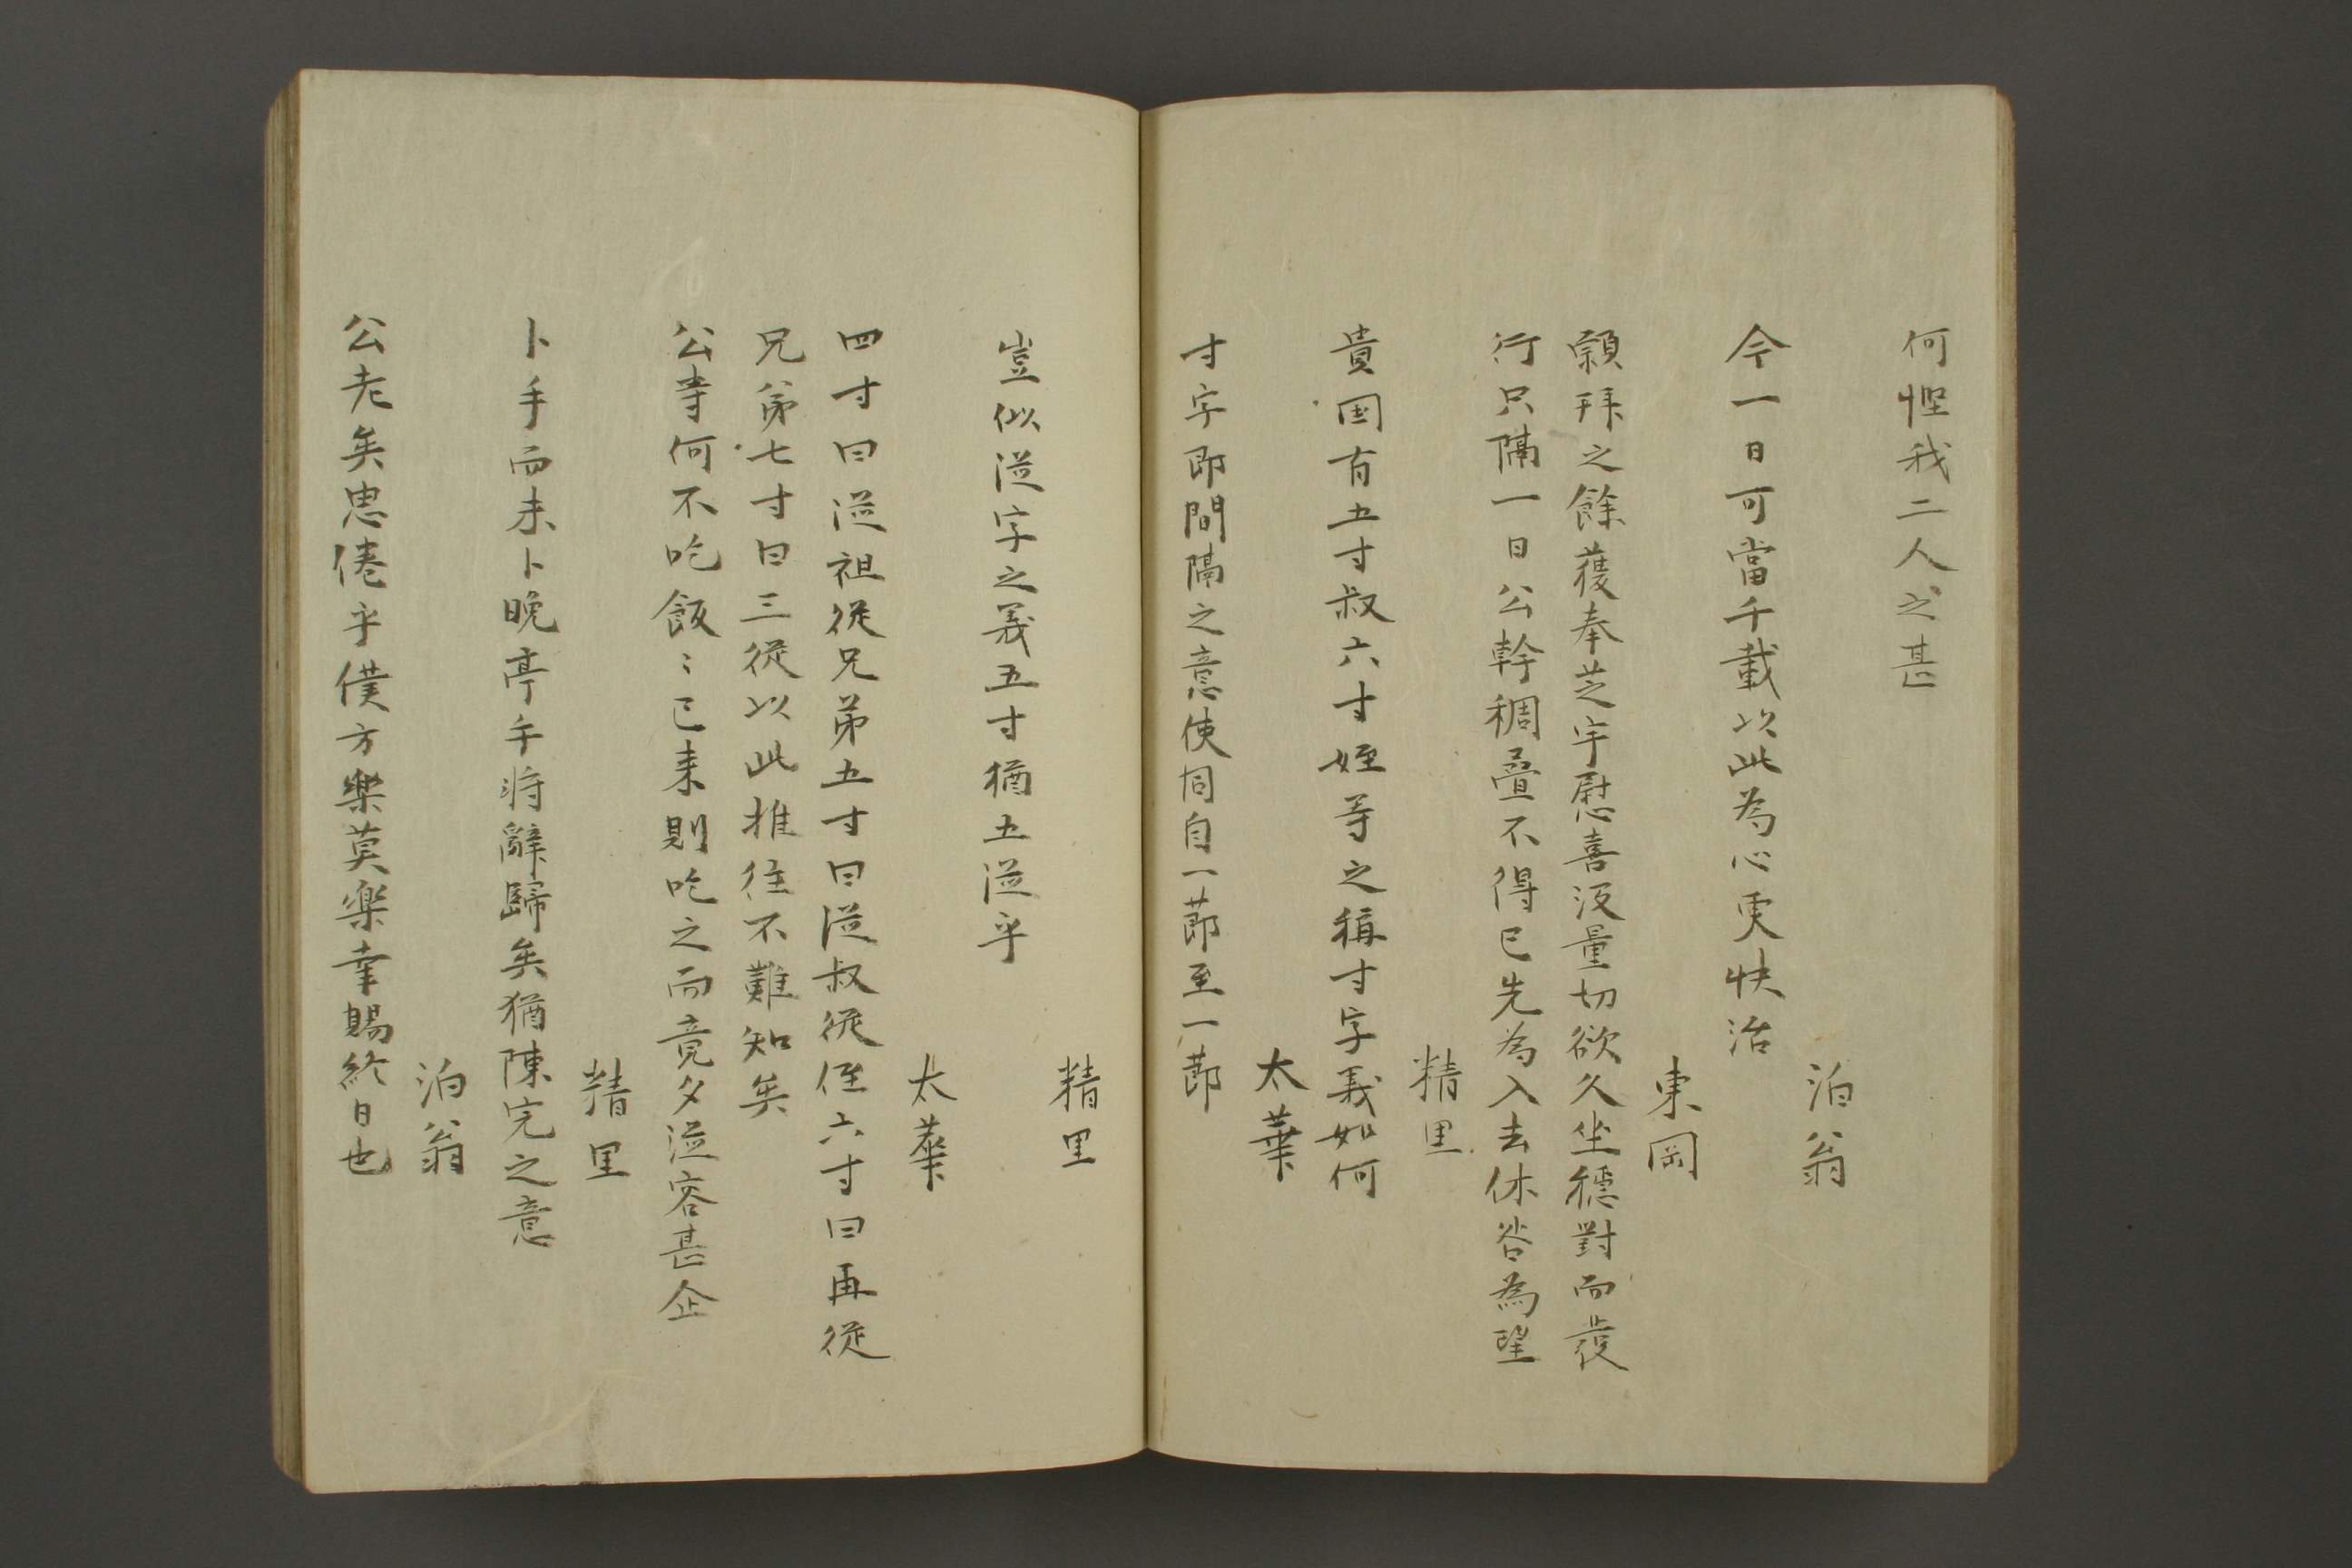 何慳我二人之甚
泊翁
今一日可當千載以此為心更快活
東岡
願拜之餘獲奉芝宇慰喜沒量切欲久坐穩對而發
行只隔一日公幹稠疊不得已先為入去休咎為望
精里
貴国有五寸叔六寸姪等之稱寸字義如何
太華
寸字即間隔之意使同自一莭至一莭
精里
豈似從字之義五寸猶五從乎
太華
四寸曰從祖從兄弟五寸曰從叔從侄六寸曰再從
兄弟七寸曰三從以此推往不難知矣
公等何不吃飯〻已来則吃之而竟夕從容甚企
精里
卜手而未卜晚亭午将辭歸矣猶陳完之意
泊翁
公老矣思倦乎僕方樂莫樂幸賜終日也